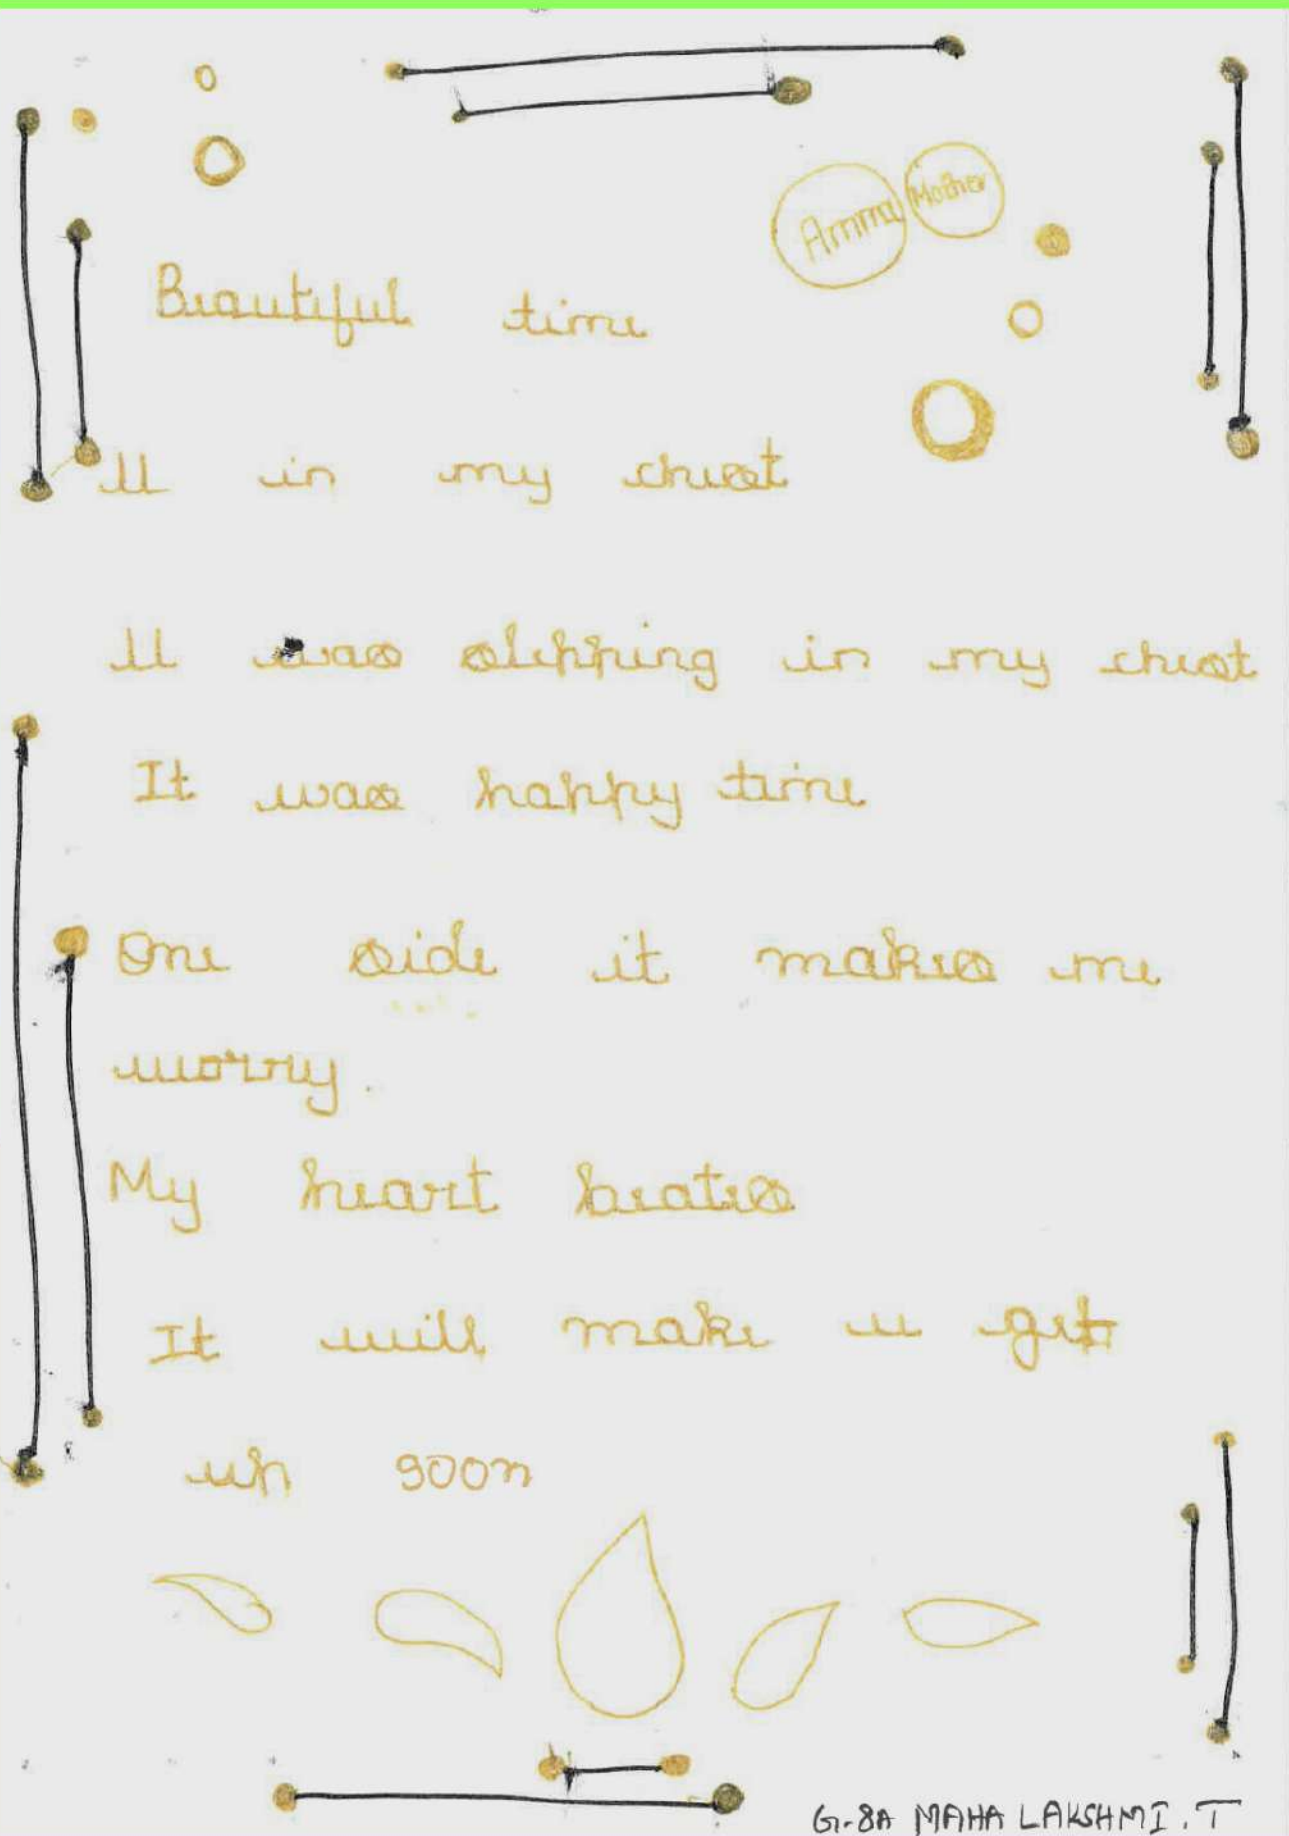 Amma Mother
Beautiful time
U in my chest
U was slepping in my chest
It was happy time
One side it makes me
worry.
My heart beates
It will make u get
up soon
G-8A MAHA LAKSHMI.T